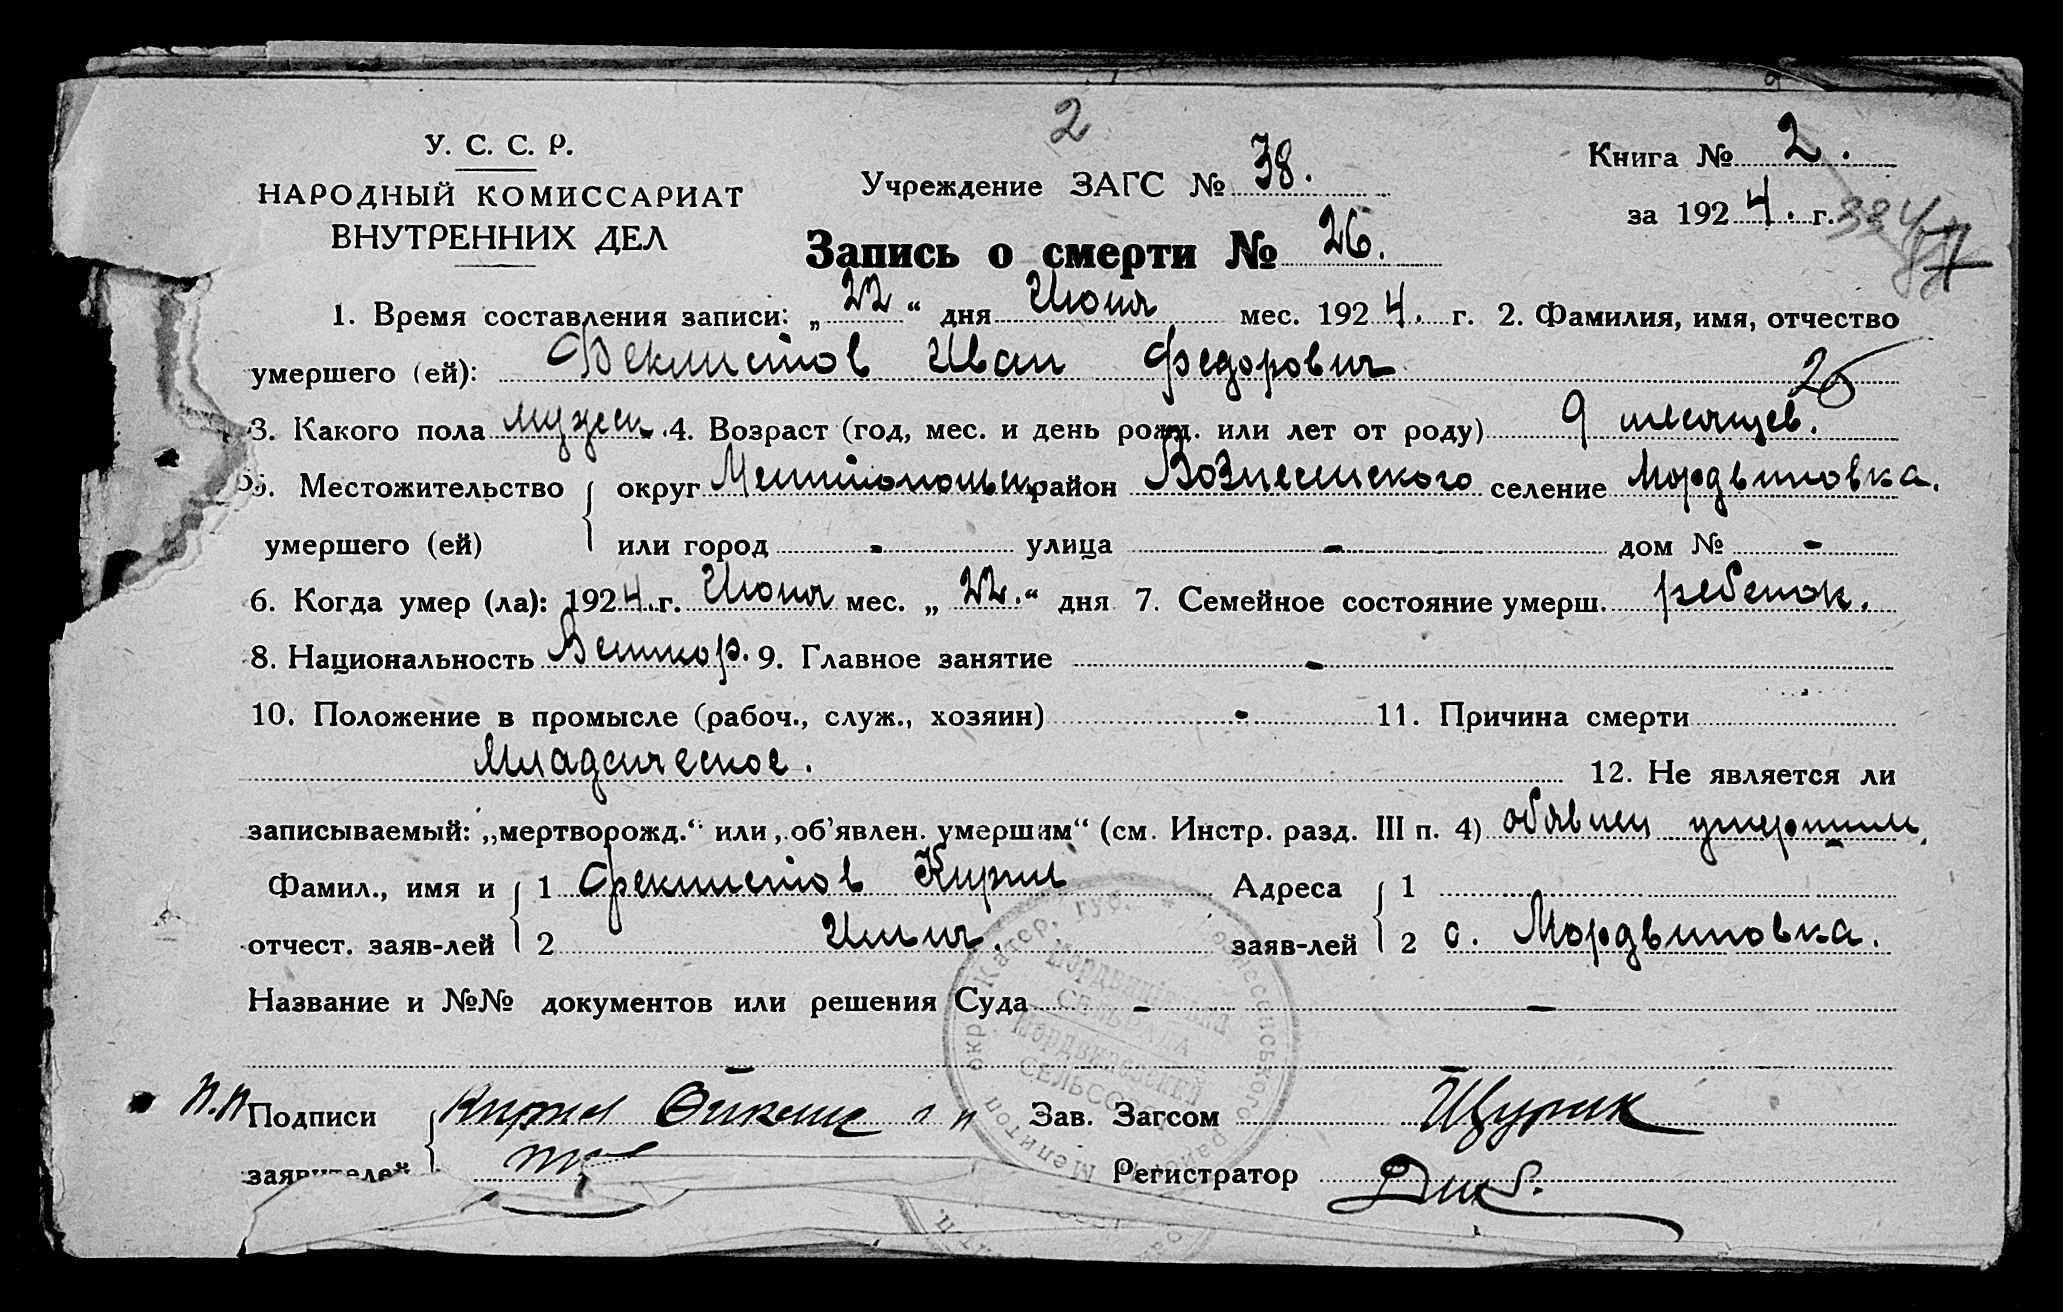 2
У. С. С. Р.
НАРОДНЫЙ КОМИССАРИАТ
ВНУТРЕННИХ ДЕЛ
Учреждение ЗАГС № 38.
Книга № 2.
за 1924. г.
Запись о смерти № 26.
1. Время составления записи: „22“ дня Июня мес. 1924. г. 2. Фамилия, имя, отчество
умершего (ей): Феклистов Иван Федорович
26
3. Какого пола мужеск. 4. Возраст (год, мес. и день рожд. или лет от роду) 9 месяцев.
5. Местожительство округ Мелитопольск район Вознесенского селение Мордвиновка.
умершего (ей) или город - улица - дом № -
6. Когда умер (ла): 1924. г. Июня мес. „22.“ дня 7. Семейное состояние умерш. ребенок.
8. Национальность Великор. 9. Главное занятие -
10. Положение в промысле (рабоч., служ., хозяин) - 11. Причина смерти
Младенческое. 12. Не является ли
записываемый: „мертворожд.“ или „об'явлен. умершим“ (см. Инстр. разд. III п. 4) обявлен умершим.
Фамил., имя и 1 Феклистов Кирил Адреса 1
отчест. заяв-лей 2 Ильич. заяв-лей 2 с. Мордвиновка.
Название и №№ документов или решения Суда - -
Мордвинівська
СЕЛЬРАДА
Мордвиновский
СЕЛЬСОВЕТ
Подписи Кирил Зав. Загсом Щурик
заявителей Регистратор